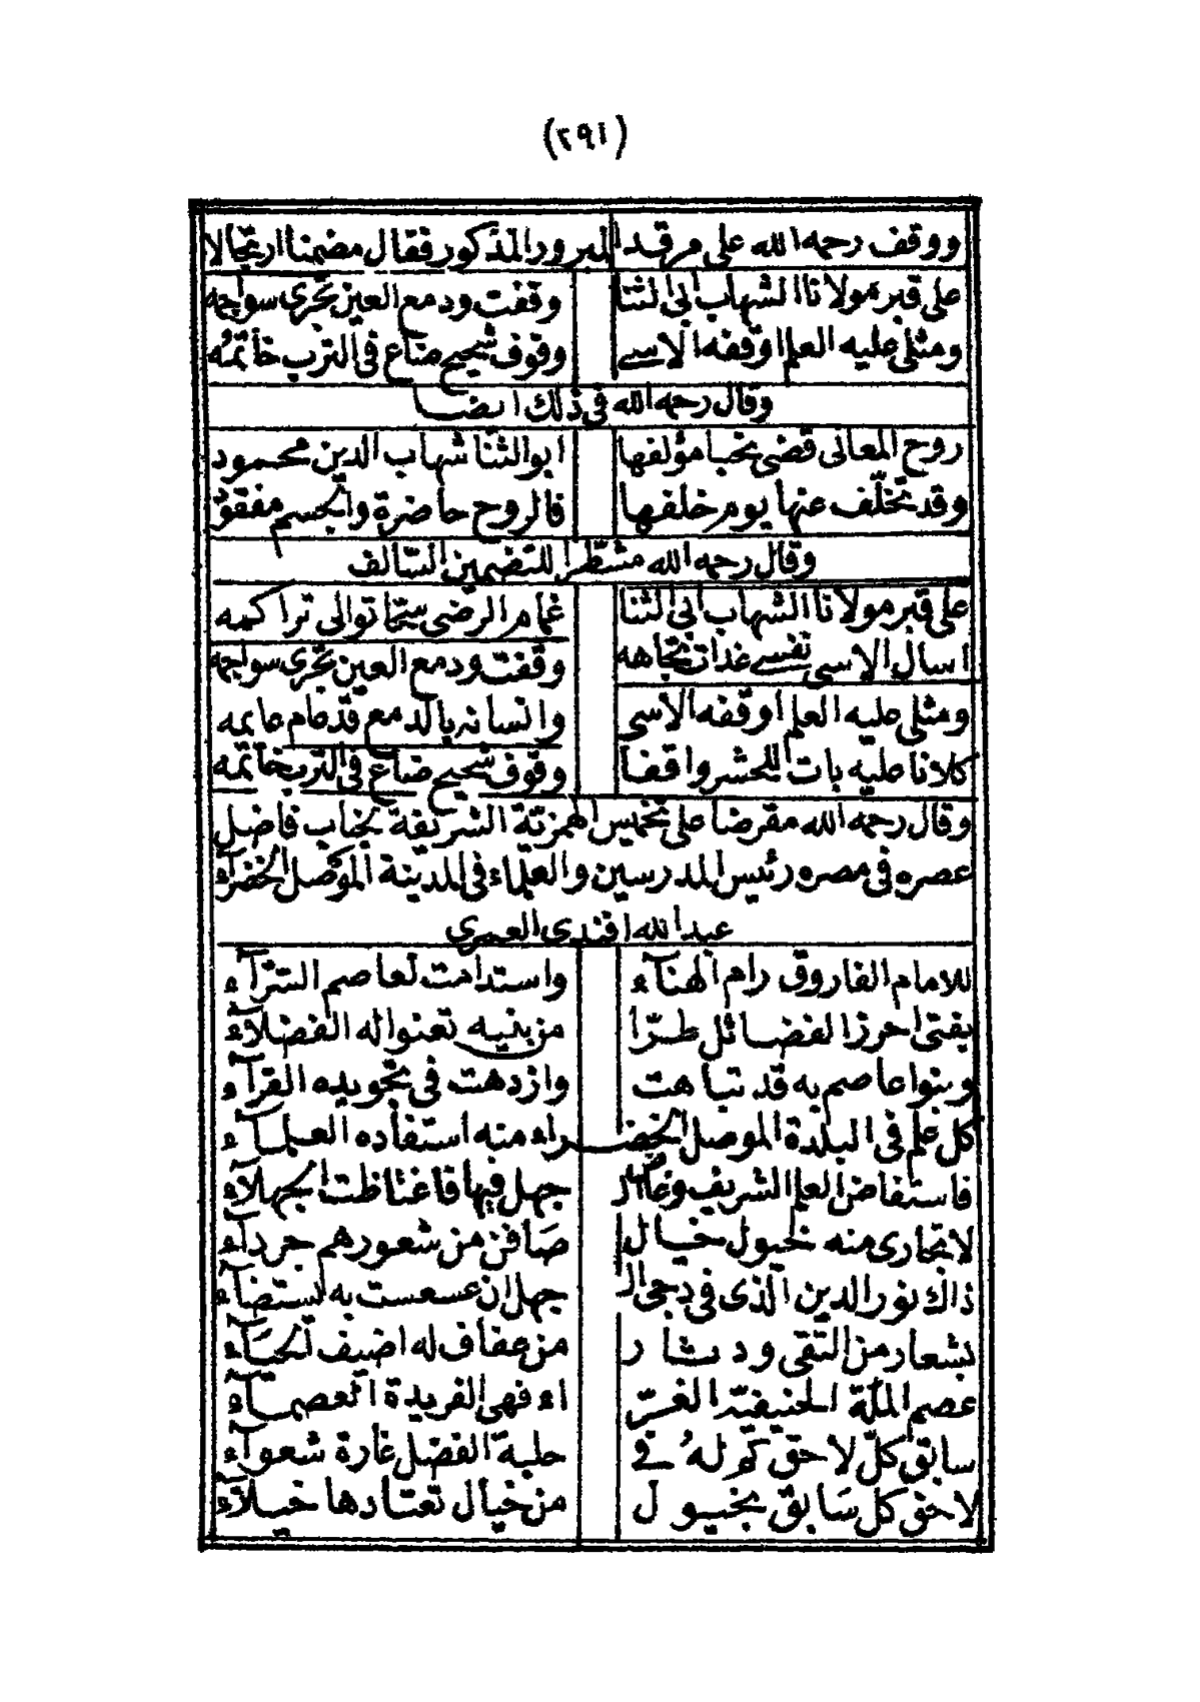 (٢٩١)
ووقف رحمه الله على مرقد المبرور المذكور فقال مضمنا ارتجالا
على قبر مولانا الشهاب ابى الثنا وقفت ودمع العين تجرى سواجمه
ومثلى عليه العلم اوقفه الاسى وقوف شحيح ضاع فى الترب خاتمه
وقال رحمه الله فى ذلك ايضا
روح المعانى قضى نحبا مؤلفها ابو الثنا شهاب الدين محمود
وقد تخلّف عنها يوم خلفها فالروح حاضرة والجسم مفقود
وقال رحمه الله مشطّرا للتضمين السّالف
على قبر مولانا الشهاب ابى الثنا غمام الرضى سحّا توالى تراكمه
اسال الاسى نفسى غداة تجاهه وقفت ودمع العين تجرى سواجمه
ومثلى عليه العلم اوقفه الاسى وانسانه بالدمع قد عام عايمه
كلانا عليه بات للحشر واقفا وقوف شحيح ضاع فى الترب خاتمه
وقال رحمه الله مقرضا على تخميس الهمزيّة الشريفة لجناب فاضل
عصره فى مصره رئيس المدرسين والعلماء فى المدينة الموصل الخضرآء
عبد الله افندى العمرى
للامام الفاروق رام الهنآء واستدامت لعاصم السّرآء
بفتى احرز الفضائل طرّا من بنيه تعنو له الفضلآء
وبنوا عاصم به قد تباهت وازدهت فى تجويده القرآء
كل علم فى البلدة الموصل الخضـراء منه استفاده العلمآء
فاستفاض العلم الشريف وغاض الـ جهل فيها فاغتاظت الجهلآء
لا تجارى منه خيول خيال صَافن من شعورهم جردآء
ذاك نور الدين الّذى فى دجى الـ جهل ان عسعست به يستضآء
بشعار من التّقى ودثار من عفاف له اضيف الحيَآء
عصم الملّة الحنيفيّة الغرّ اء فهى الفريدة العصمآء
سابق كلّ لاحق كم لهُ فى حلبة الفضل غارة شعوآء
لاحق كل سَابق بخيول من خيال تعتادها خيلآء